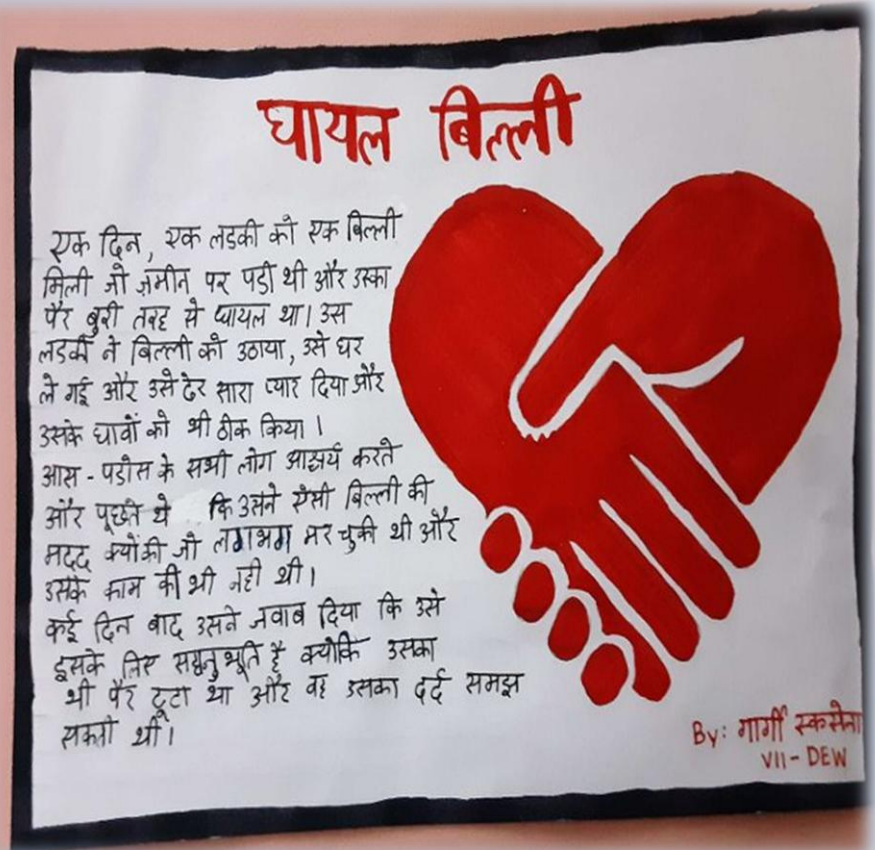 घायल बिल्ली
एक दिन, एक लडकी को एक बिल्ली
मिली जो ज़मीन पर पडी थी और उस्का
पैर बुरी तरह से घायल था। उस
लडकी ने बिल्ली को उठाया, उसे घर
ले गई और उसे ढेर सारा प्यार दिया और
उसके घावों को भी ठीक किया।
आस-पडोस के सभी लोग आश्चर्य करते
और पूछते थे कि उसने ऐसी बिल्ली की
मदद क्यों की जो लगभग मर चुकी थी और
उसके काम की भी नही थी।
कई दिन बाद उसने जवाब दिया कि उसे
इसके लिए सहानुभूति है क्योकि उसका
भी पैर टूटा था और वह उसका दर्द समझ
सकती थी।
By: गार्गी स्कसेना
VII-DEW